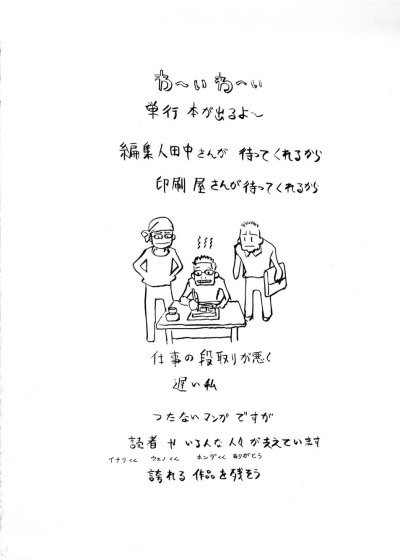 わ〜い わ〜い
単行本が出るよ〜
編集人田中さんが 待ってくれるから
印刷屋さんが待ってくれるから
仕事の段取りが悪く
遅い私
つたないマンガですが
読者やいろんな人々が支えています
イナリくん ウェノくん ホンダくん ありがとう
誇れる作品を残そう